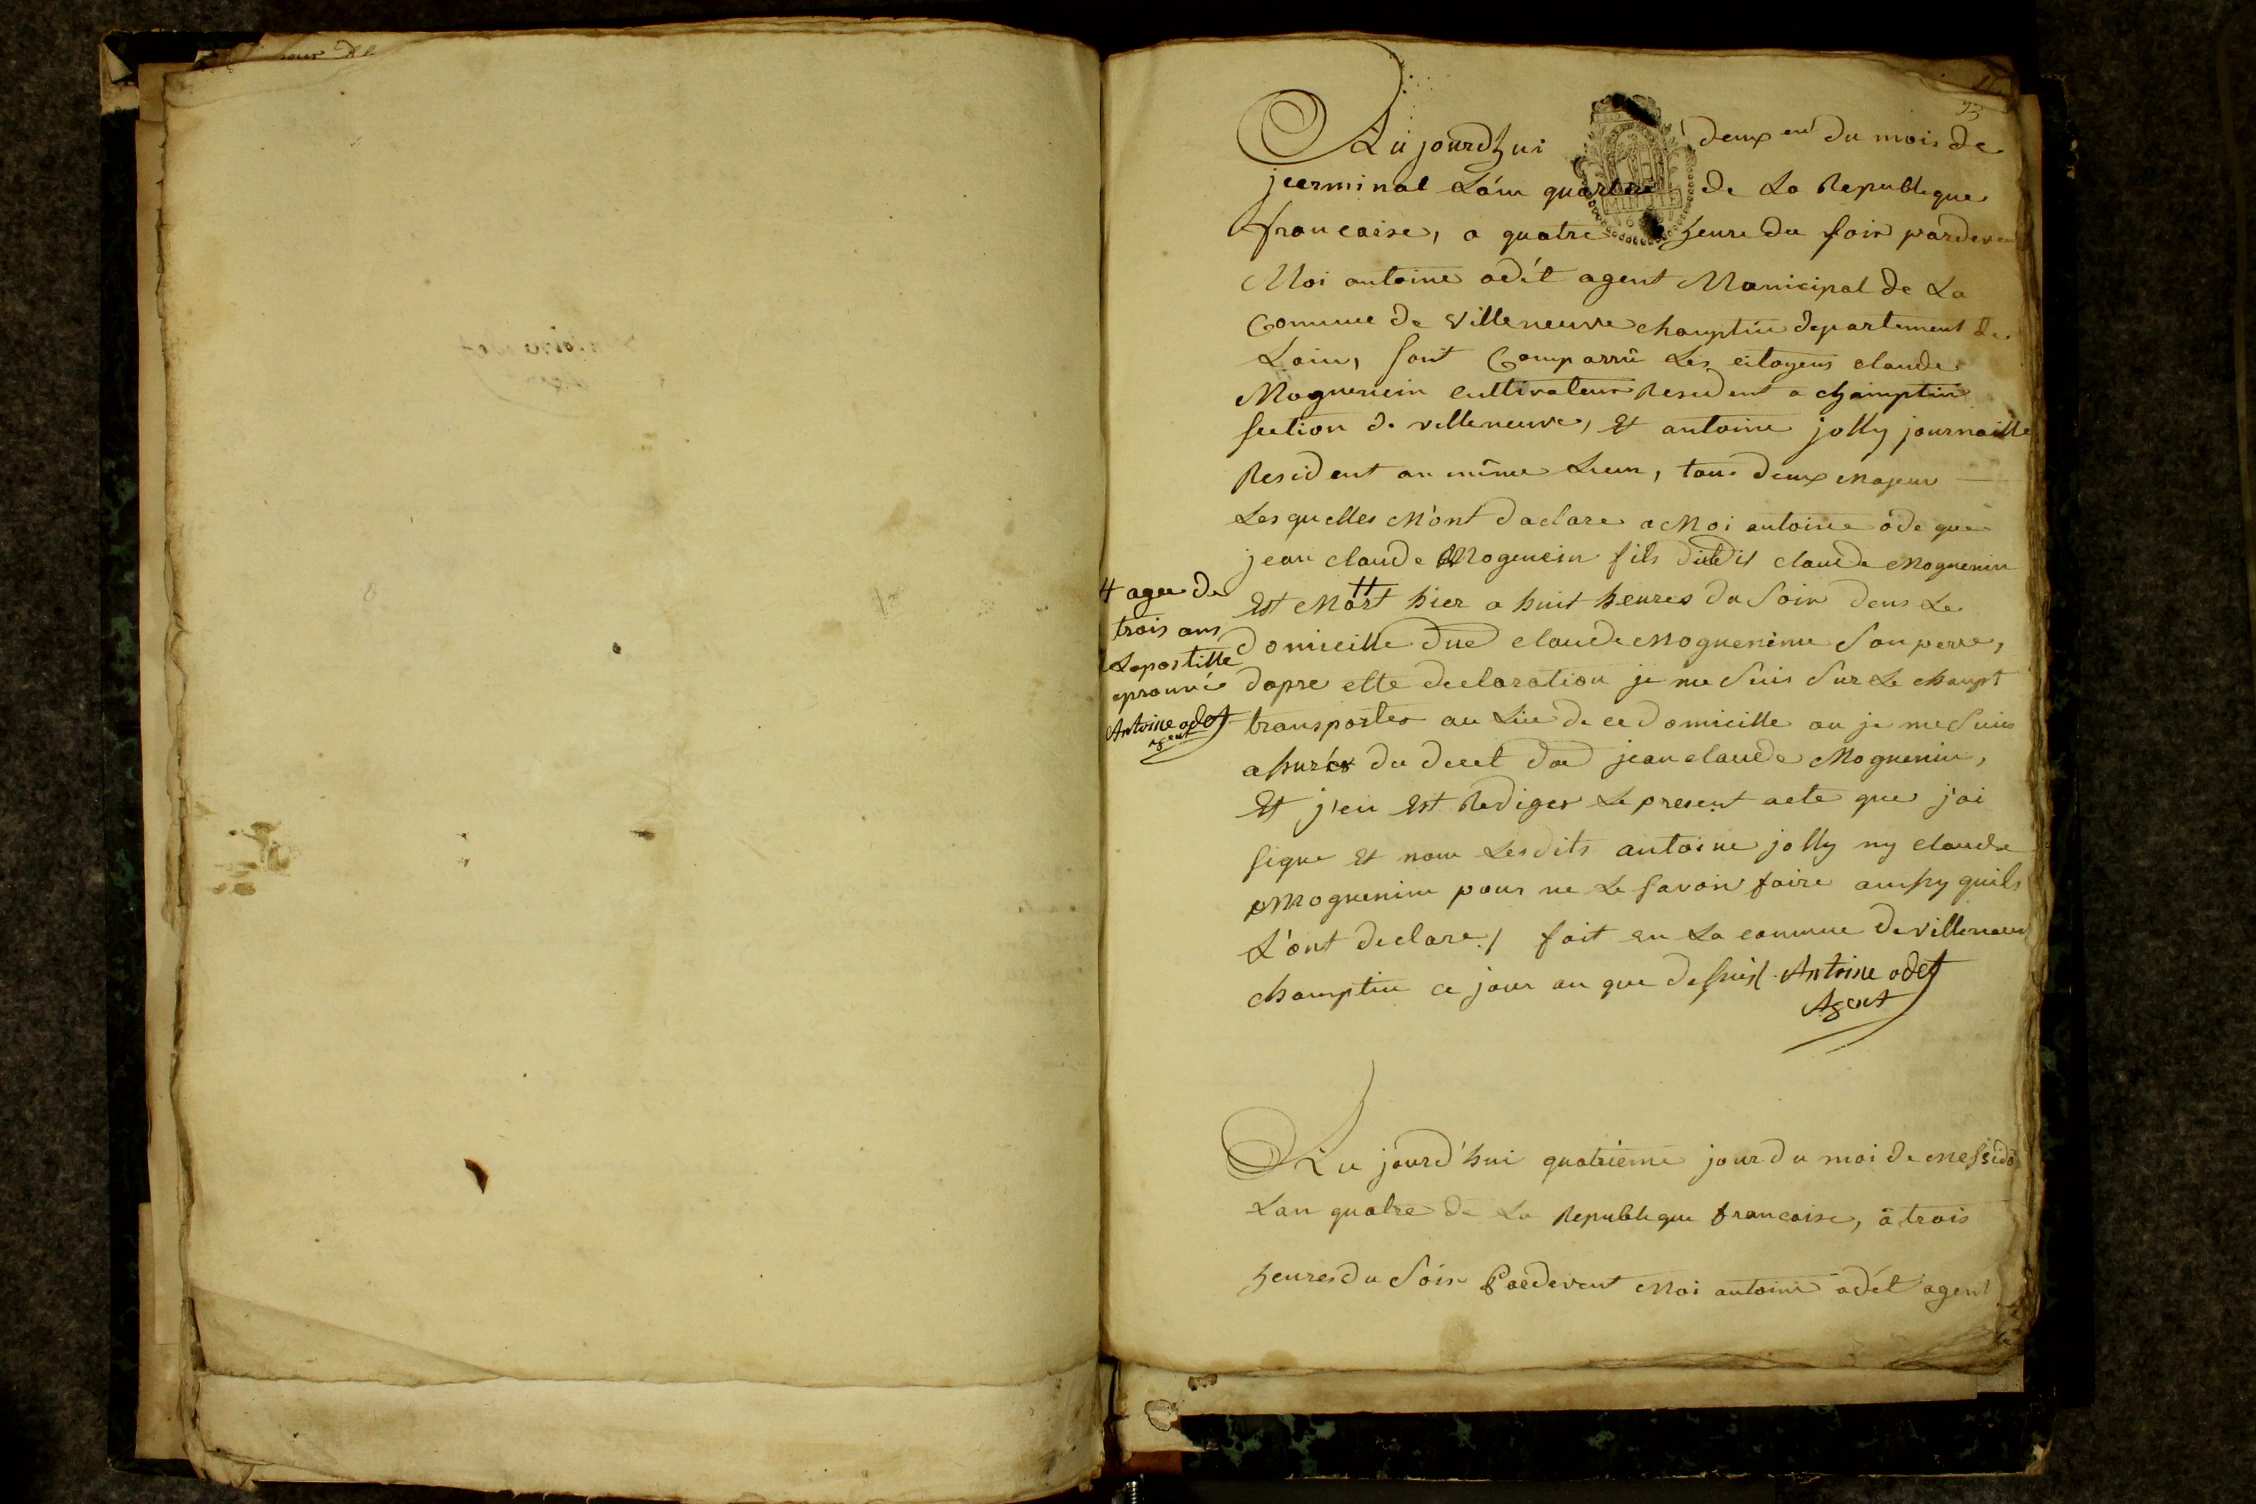 Au jourdhui deux eme du mois de
jeerminal L'an quatre de La Republique
francaise, a quatre heure du soir pardevent
Moi antoine odét agent Municipal de La
Commune de villeneuve champtin departement de
Lain, sont Comparrû Les citoyens claude
Moguenin Cultivateur Resident a champtin
section de villeneuve, Et antoine jolly journaille
Resident au même Lieu, tous deux Majeur
Les quelles M'ont daclare a Moi antoine ode que
jean claude Mogenein fils dudit claude Moguenin
Est Mort hier a huit heures du Soir dens Le
domicille due claude Moguenime Son perre,
dapre elte declaration je me Suis Sur Le champt
transporter au Lieu de ce domicille ou je me Suis
assurés du decet dud jean claude Moguenin,
Et j'en Est Rediger Le present acte que j'ai
signe Et nom Lesdits antoine jolly ny claude
Moguenim pour ne Le savoir faire ainssy quils
L'ont declare / fait en La commune de villeneuve
champtin ce jour an que dessus Antoine odet
Agent
# agee de
trois ans
Lapostille
aprouvée
Antoine odet
agent
Au jourd'hui quatrieme jour du moi de Messidor
Lan quatre de La Republique francaise, à trois
heures du Soir Pardevent Moi antoine odét agent